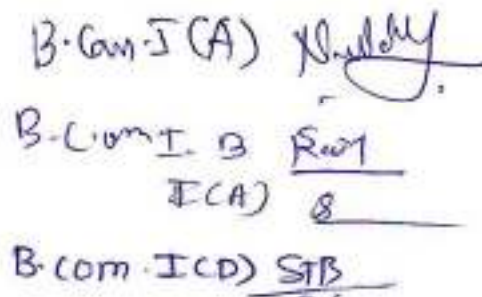 B.Com.I(A)
B.Com I. B
I(A) 8
B.Com.I(D) STB